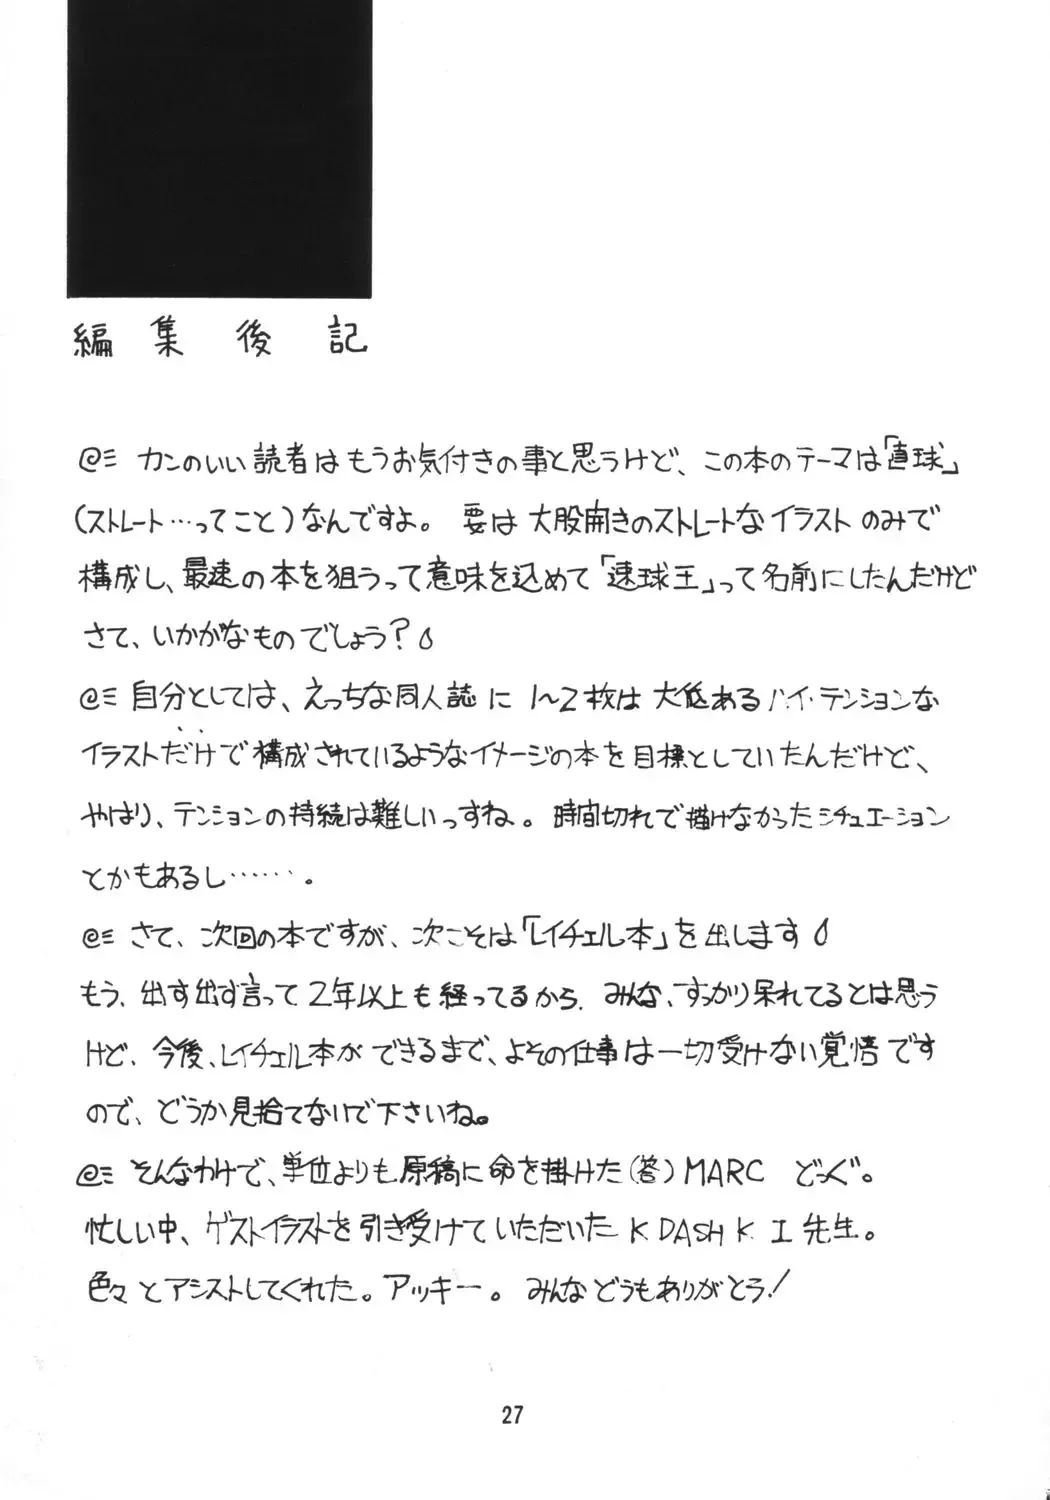 編集後記
@ミ カンのいい読者はもうお気付きの事と思うけど、この本のテーマは「直球」
(ストレート…ってこと)なんですよ。 要は大股開きのストレートなイラストのみで
構成し、最速の本を狙うって意味を込めて「速球王」って名前にしたんだけど
さて、いかがなものでしょう?
@ミ 自分としては、えっちな同人誌に1〜2枚は大低あるハイ・テンションな
イラストだけで構成されているようなイメージの本を目標としていたんだけど、
やはり、テンションの持続は難しいっすね。時間切れで描けなかったシチュエーション
とかもあるし……。
@ミ さて、次回の本ですが、次こそは「レイチェル本」を出します
もう、出す出す言って2年以上も経ってるから、みんな、すっかり呆れてるとは思う
けど、今後、レイチェル本ができるまで、よその仕事は一切受けない覚悟です
ので、どうか見捨てないで下さいね。
@ミ そんなわけで、単位よりも原稿に命を掛けた(答)MARC どっぐ。
忙しい中、ゲストイラストを引き受けていただいたK DASH K I 先生。
色々とアシストしてくれた。アッキー。 みんなどうもありがとう!
27